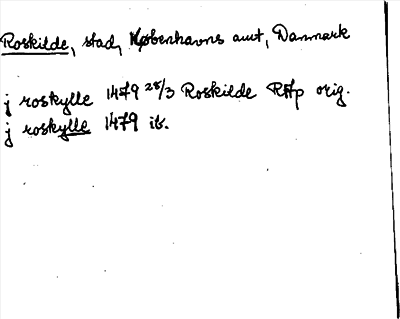 Roskilde, stad, Københavns amt, Danmark
j roskylle 1479 28/3 Roskilde RAp orig.
j roskylle 1479 ib.